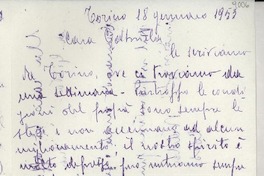 4006
Torino 18 gennaio 1953
Cara Gabriella
le scriviamo
da Torino, ove ci troviamo da
una settimana - Purtroppo le condi
zioni del papà sono sempre le
stesse e non accennano ad alcun
miglioramento; il nostro spirito è
molto depresso, pur nutriamo sempre